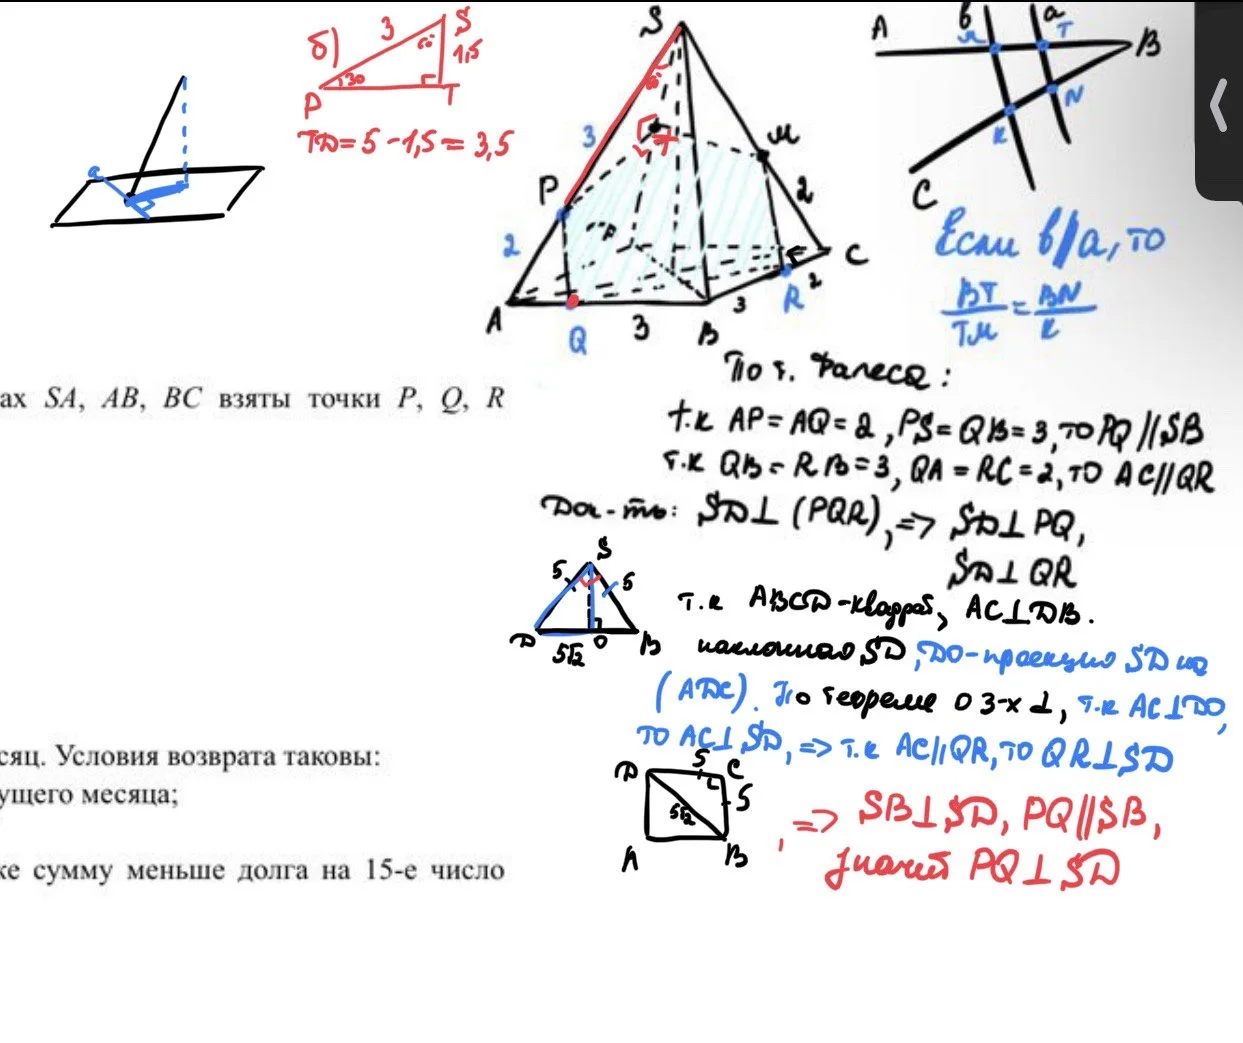 б)
3
S
60°
1,5
30
P
T
TD = 5 - 1,5 = 3,5
a
S
60°
3
T
M
P
2
2
D
C
A
Q
3
B
3
R
2
A
в
a
M
T
B
K
N
C
Если в∥a, то
BT/TM = BN/K
По т. Фалеса:
т.к AP = AQ = 2, PS = QB = 3, то PQ∥SB
т.к QB = RB = 3, QA = RC = 2, то AC∥QR
Док-ть: SD⊥(PQR), => SD⊥PQ,
SD⊥QR
S
5
5
D
O
B
5√2
т.к ABCD-квадрат, AC⊥DB.
наклонная SD, DO-проекция SD на
(ADC). По теореме о 3-х ⊥, т.к AC⊥DO,
то AC⊥SD, => т.к AC∥QR, то QR⊥SD
5
D
C
5
5√2
A
B
, => SB⊥SD, PQ∥SB,
значит PQ⊥SD
ах SA, AB, BC взяты точки P, Q, R
сяц. Условия возврата таковы:
ущего месяца;
ке сумму меньше долга на 15-е число